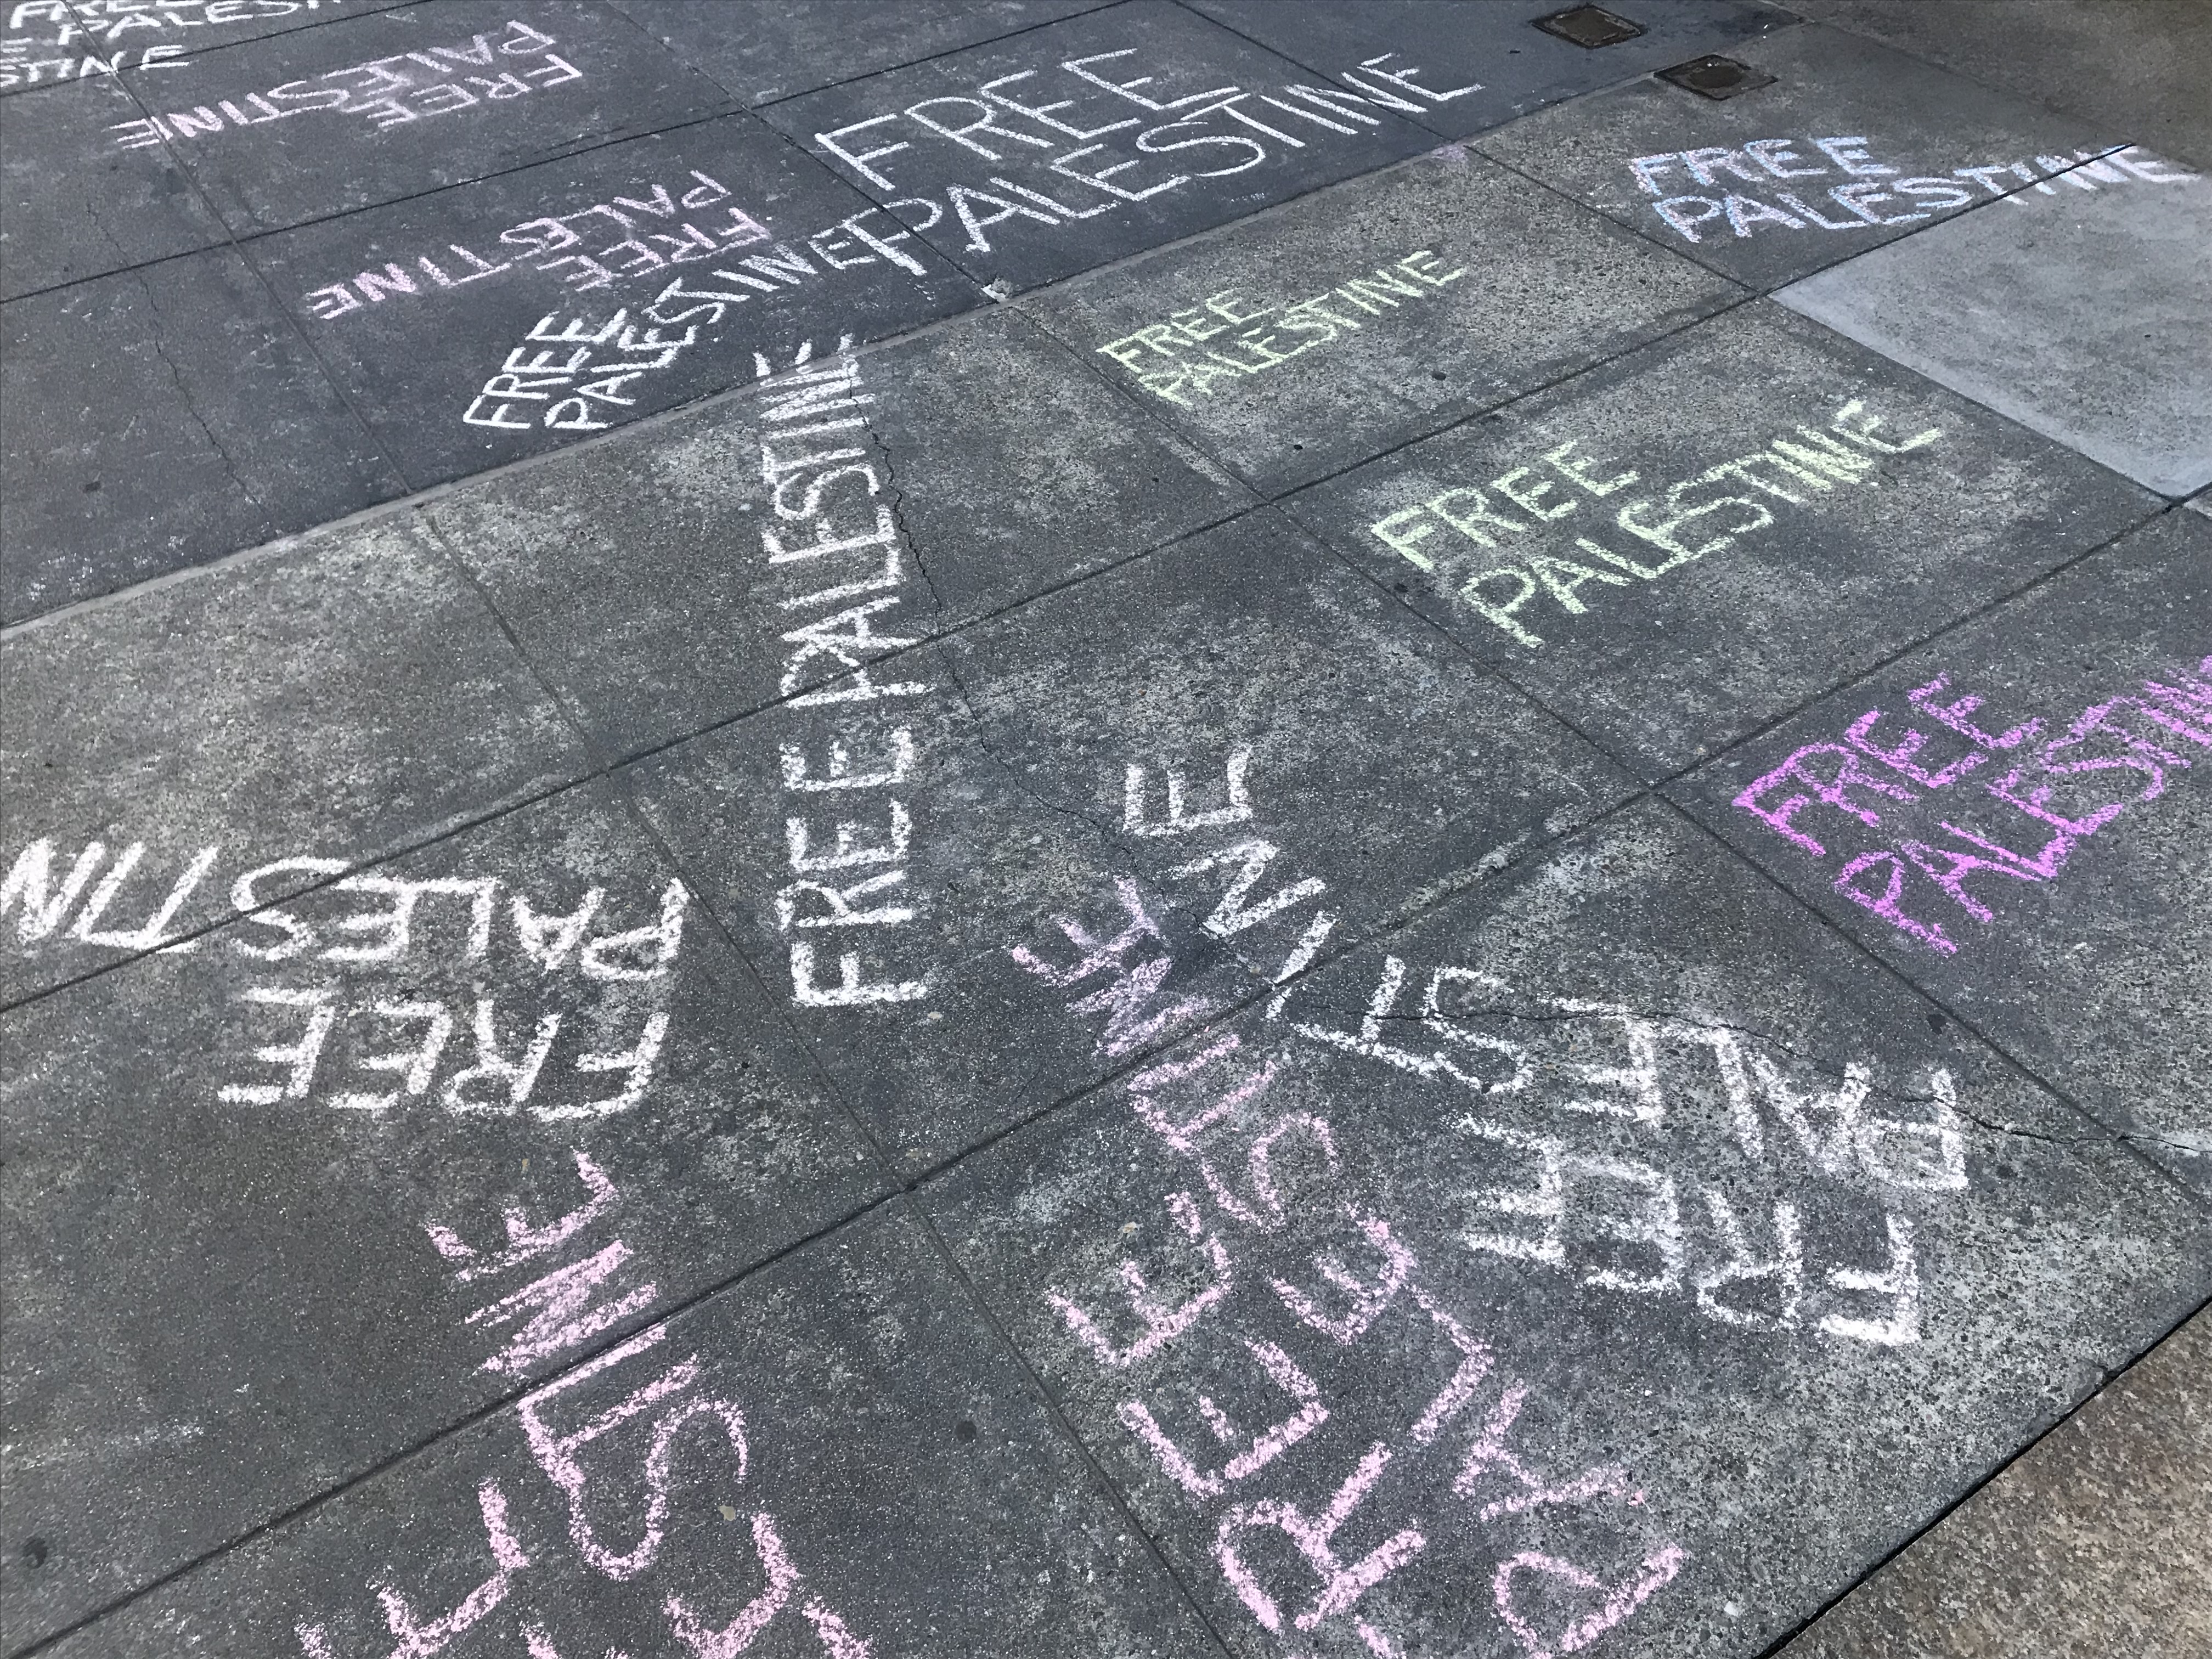 FREE
PALESTINE
STINE
FREE
PALESTINE
FREE
PALESTINE
FREE
PALESTINE
FREE
PALESTINE
FREE
PALESTINE
FREE
PALESTINE
FREE PALESTINE
FREE
PALESTINE
FREE
PALESTIN
FREE
PALESTIN
FREE
PALESTINE
FREE
PALESTINE
ESTINE